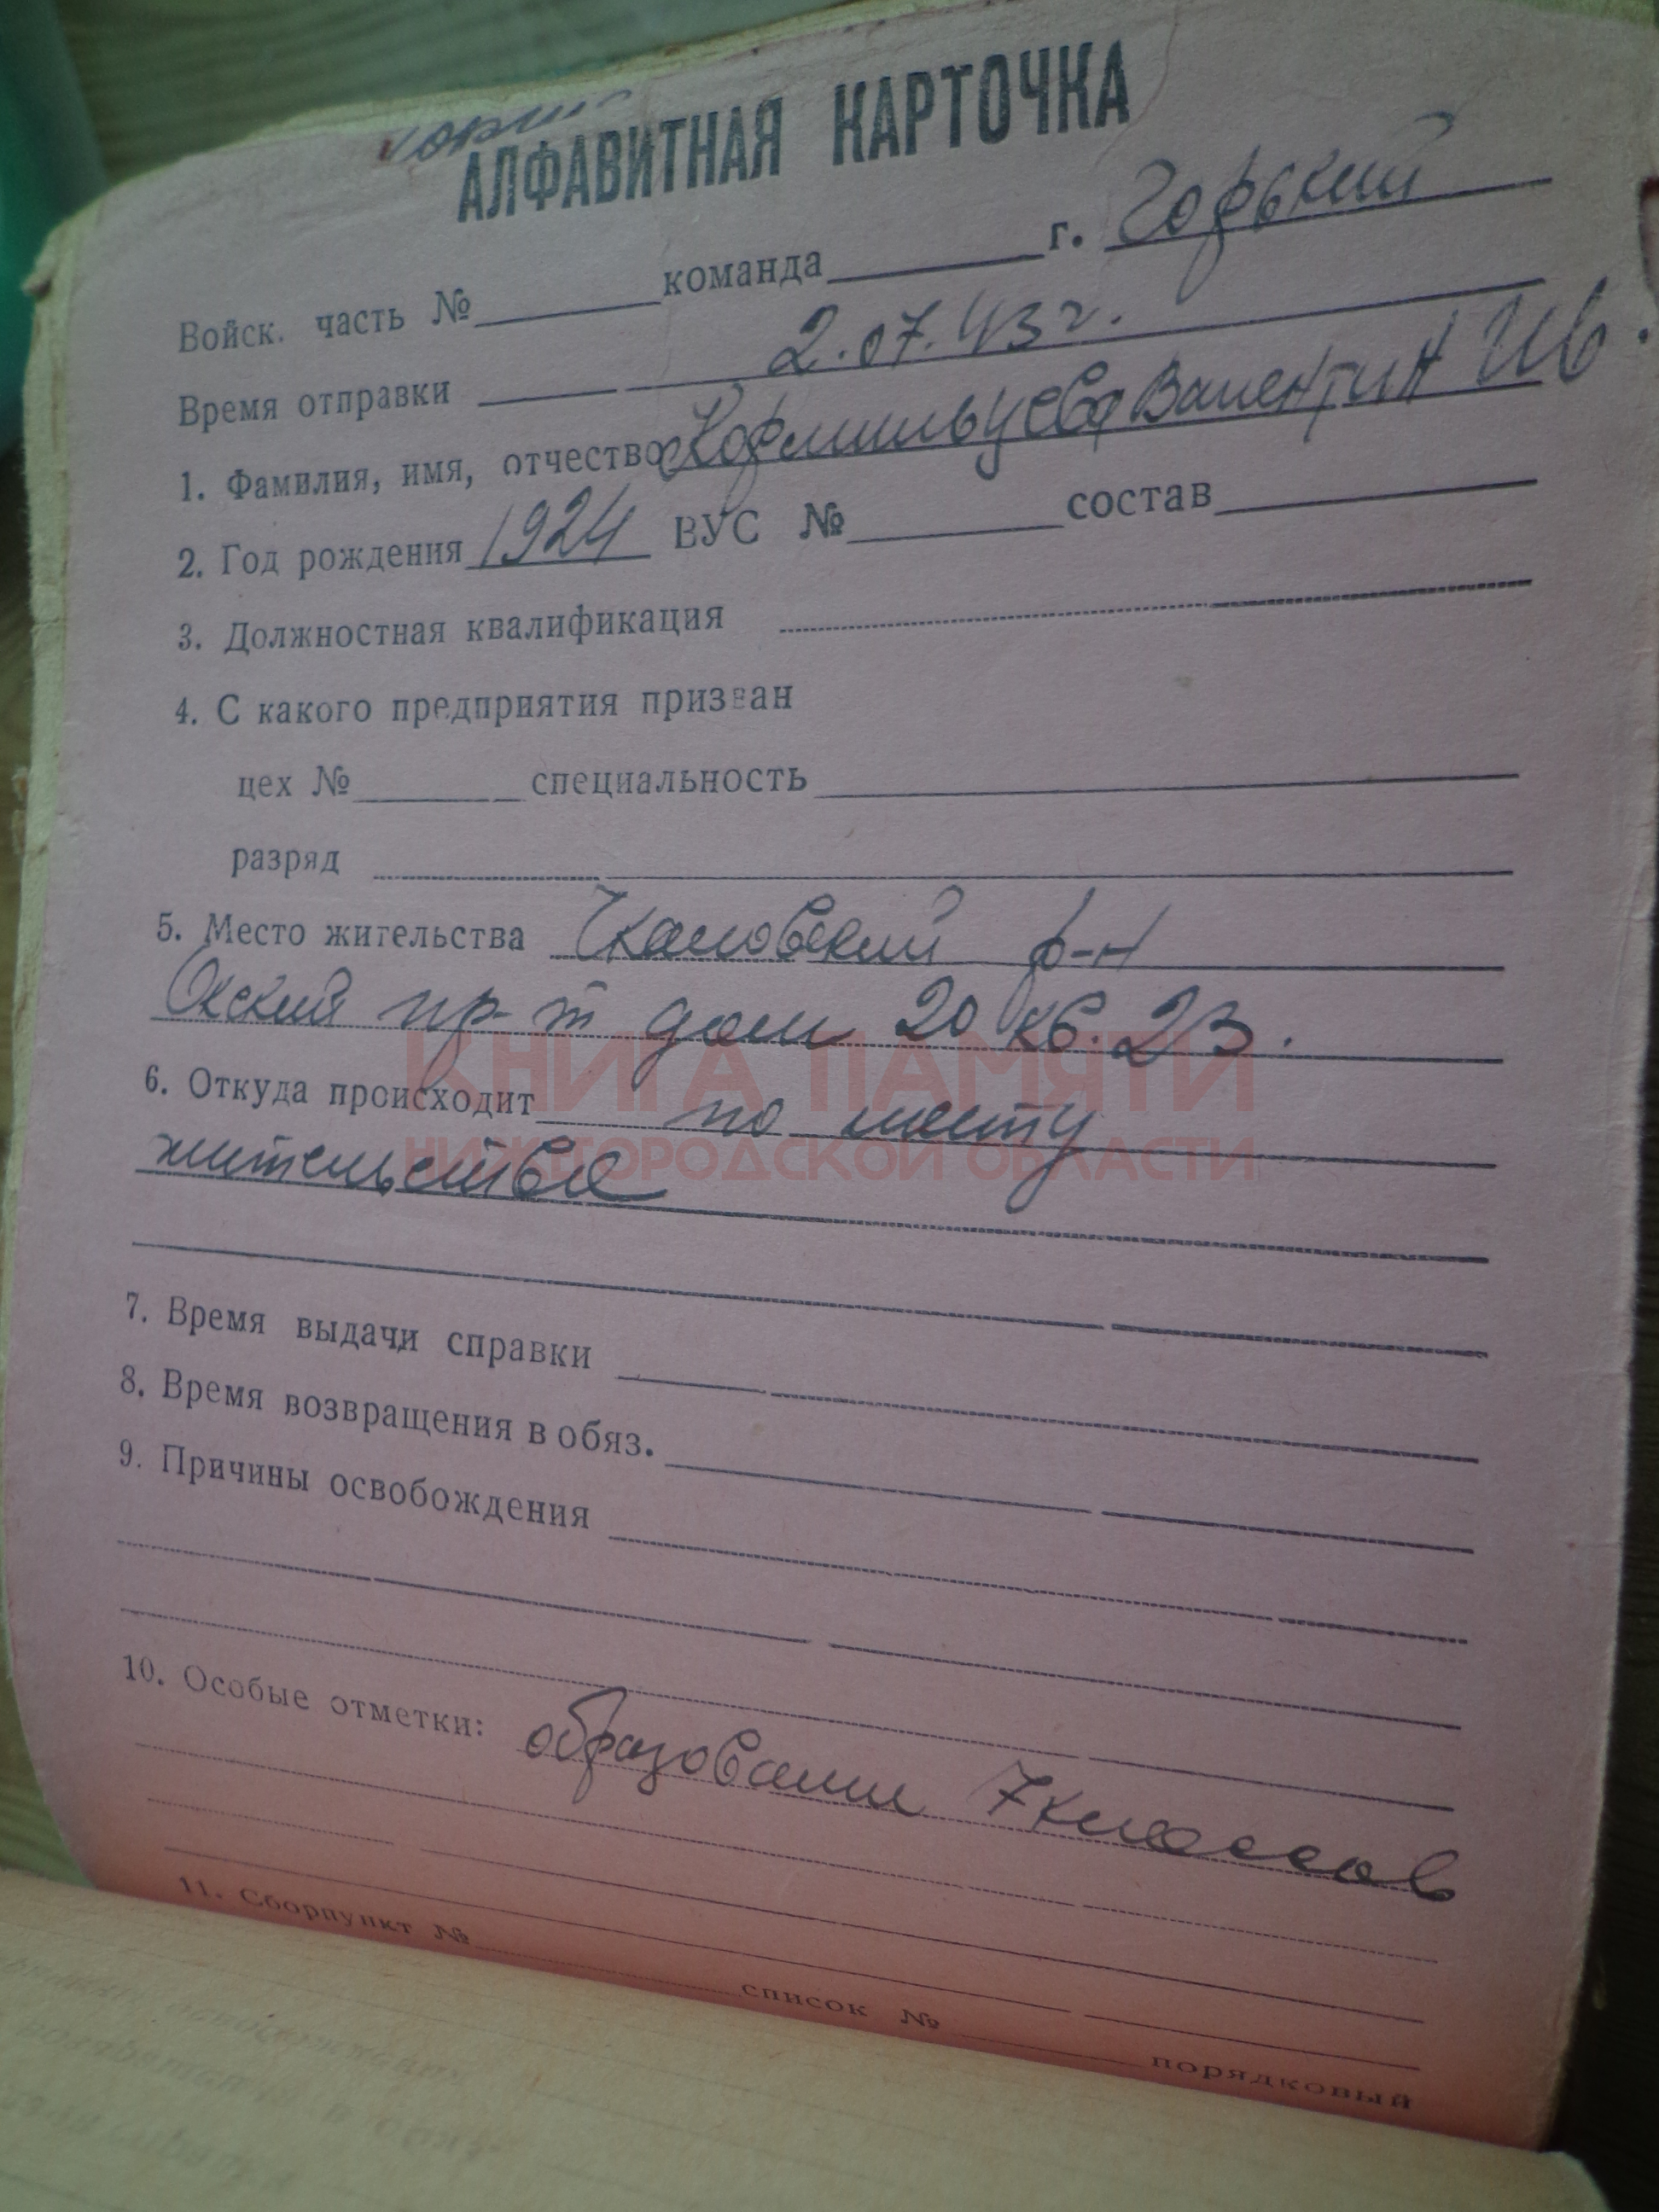 АЛФАВИТНАЯ КАРТОЧКА
Войск. часть № команда г. Горький
Время отправки 2.07.43 г.
1. Фамилия, имя, отчество Кормильцева Валентин Ив.
2. Год рождения 1924 ВУС № состав
3. Должностная квалификация
4. С какого предприятия призван
цех № специальность
разряд
5. Место жительства Чкаловский р-н
Окский пр-т дом 20 кв. 23.
КНИГА ПАМЯТИ
6. Откуда происходит по месту
НИЖЕГОРОДСКОЙ ОБЛАСТИ
жительства
7. Время выдачи справки
8. Время возвращения в обяз.
9. Причины освобождения
10. Особые отметки: образовании 7 классов
11. Сборпункт № список № порядковый